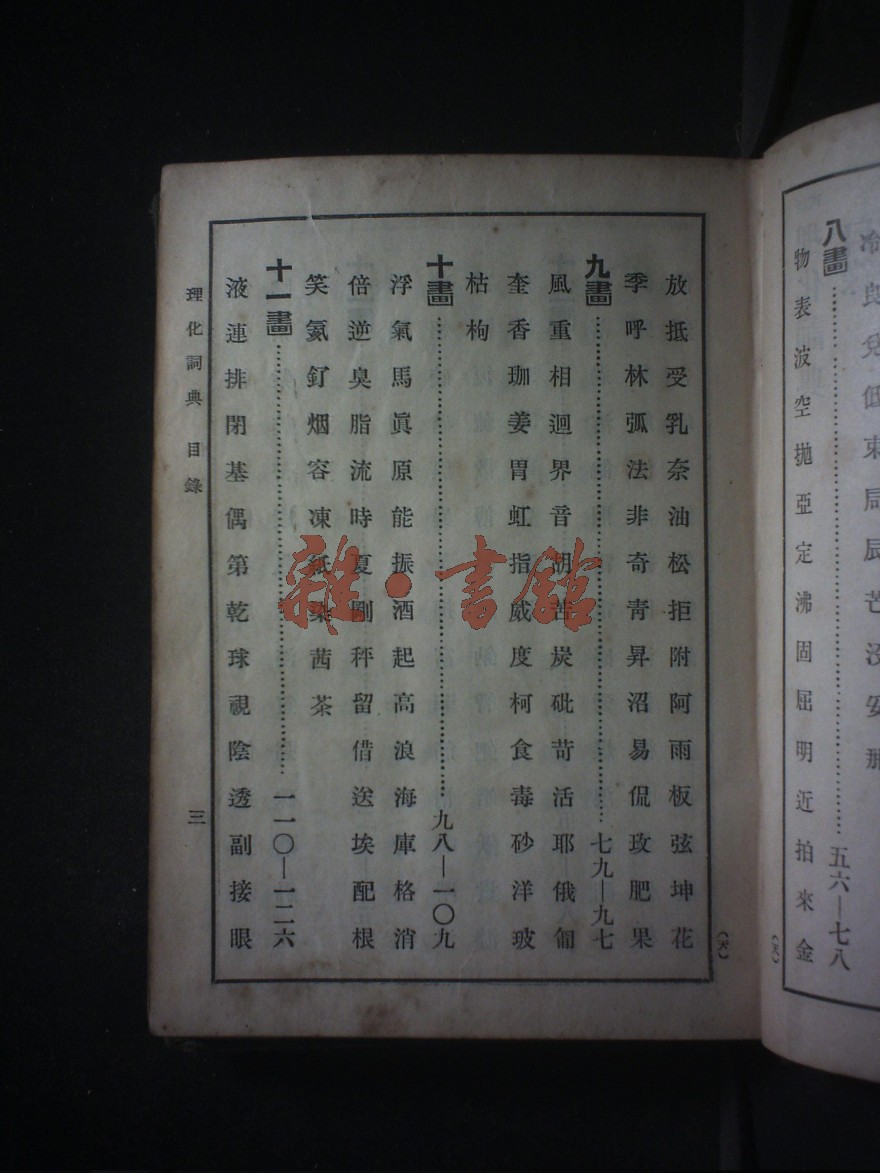 冷郎兌低束局辰芒沒安那
八畫 五六—七八
物表波空拋亞定沸固屈明近拍來金
放抵受乳奈油松拒附阿雨板弦坤花
季呼林弧法非奇靑昇沼易侃玫肥果
九畫 七九—九七
風重相迴界音胡苦炭砒苛活耶俄
奎香珈姜胃虹指威度柯食毒砂洋玻
枯枸
十畫 九八—一〇九
浮氣馬眞原能振酒起高浪海庫格消
倍逆臭脂流時夏剛秤留借送埃配根
笑氨釘烟容凍紙染茜茶
十一畫 一一〇—一二六
液連排閉基偶第乾球視陰透副接眼
理化詞典 目錄
三
雜·書館